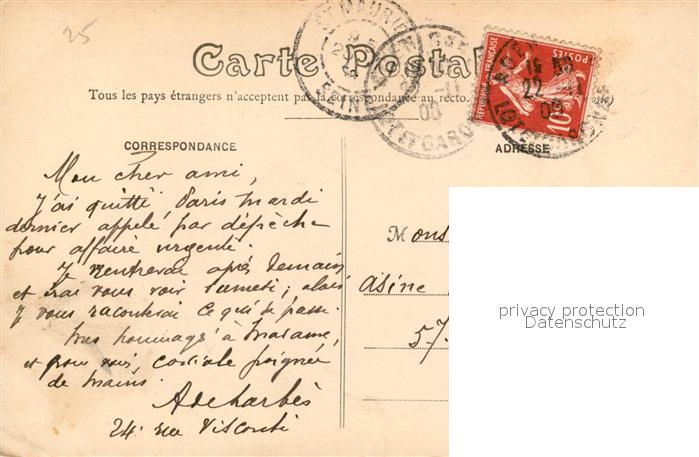 25
Carte Postale
Tous les pays étrangers n'acceptent pas la correspondance au recto.
CORRESPONDANCE
ADRESSE
RÉPUBLIQUE FRANÇAISE
POSTES
10
ST MAURICE
SEINE
22 -11
09
LOT ET GARONNE
Mon cher ami,
J'ai quitté Paris mardi
dernier appelé par dépêche
pour affaire urgente.
Je rentrerai après demain
et irai vous voir samedi; alors
je vous raconterai ce qui se passe.
Mes hommages à Madame,
et pour vous, cordiale poignée
de mains.
24 rue Visconti
Mons
asine
57
privacy protection
Datenschutz